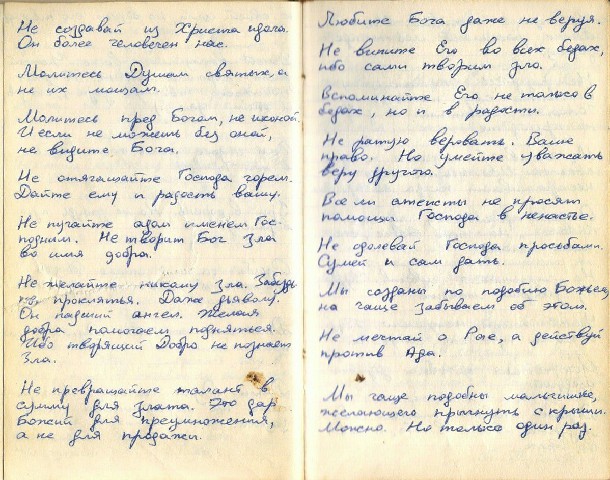 Не создавай из Христа идола.
Он более человечен нас.
Молитесь Душам святых, а
не их мощам.
Молитесь пред Богом, не иконой.
И если не можешь без оной,
не видите Бога.
Не отягощайте Господа горем.
Дайте ему и радость вашу.
Не пугайте адом именем Гос-
подним. Не творит Бог Зла
во имя добра.
Не желайте никому Зла. Забудь-
те проклятья. Даже дьяволу.
Он падший ангел. Желая
добра помогаем подняться.
Ибо творящий Добро не познает
Зла.
Не превращайте талант в
сумму для злата. Это дар
Божий для преумножения,
а не для продажи.
Любите Бога даже не веруя.
Не вините Его во всех бедах,
ибо сами творим зло.
Вспоминайте Его не только в
бедах, но и в радости.
Не ратую веровать. Ваше
право. Но умейте уважать
веру другого.
Все ли атеисты не просят
помощи Господа в ненастье.
Не одолевай Господа просьбами.
Сумей и сам дать.
Мы созданы по подобию Божьему,
но чаще забываем об этом.
Не мечтай о Рае, а действуй
против Ада.
Мы чаще подобны мальчишке,
желающего прыгнуть с крыши.
Можно. Но только один раз.